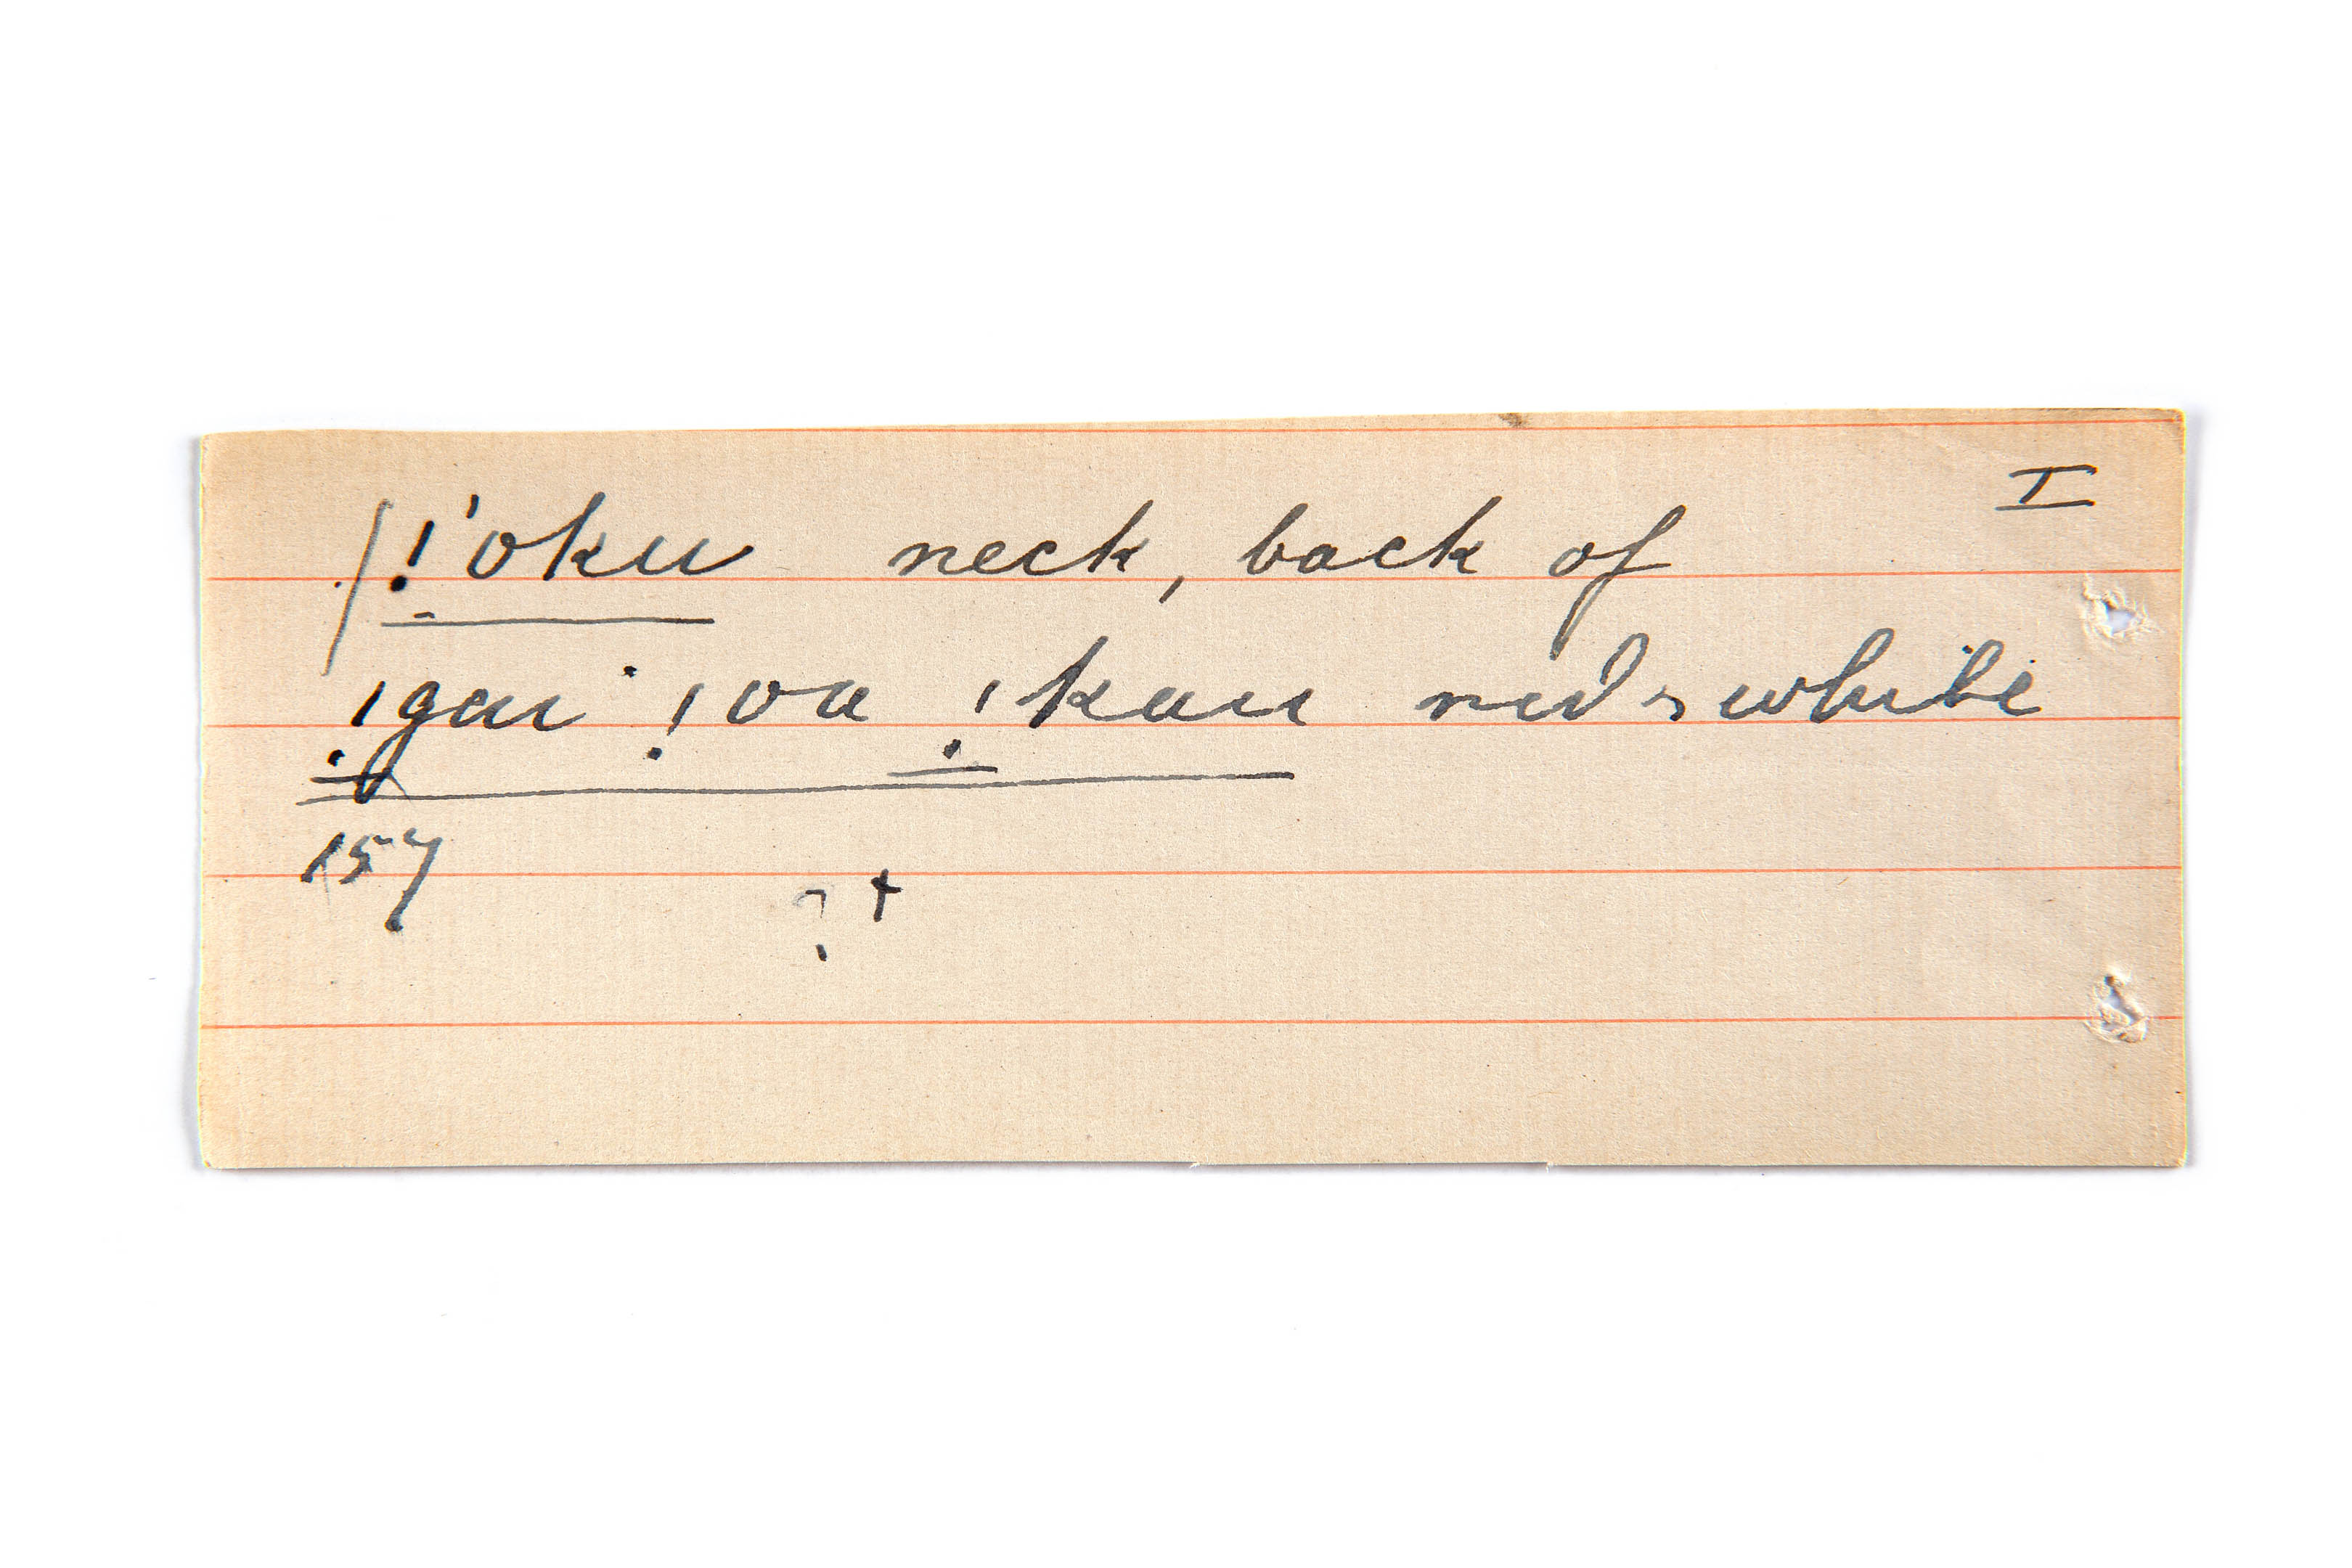 I
/!'oku neck, back of
!gai !oa !kau red & white
157
? +